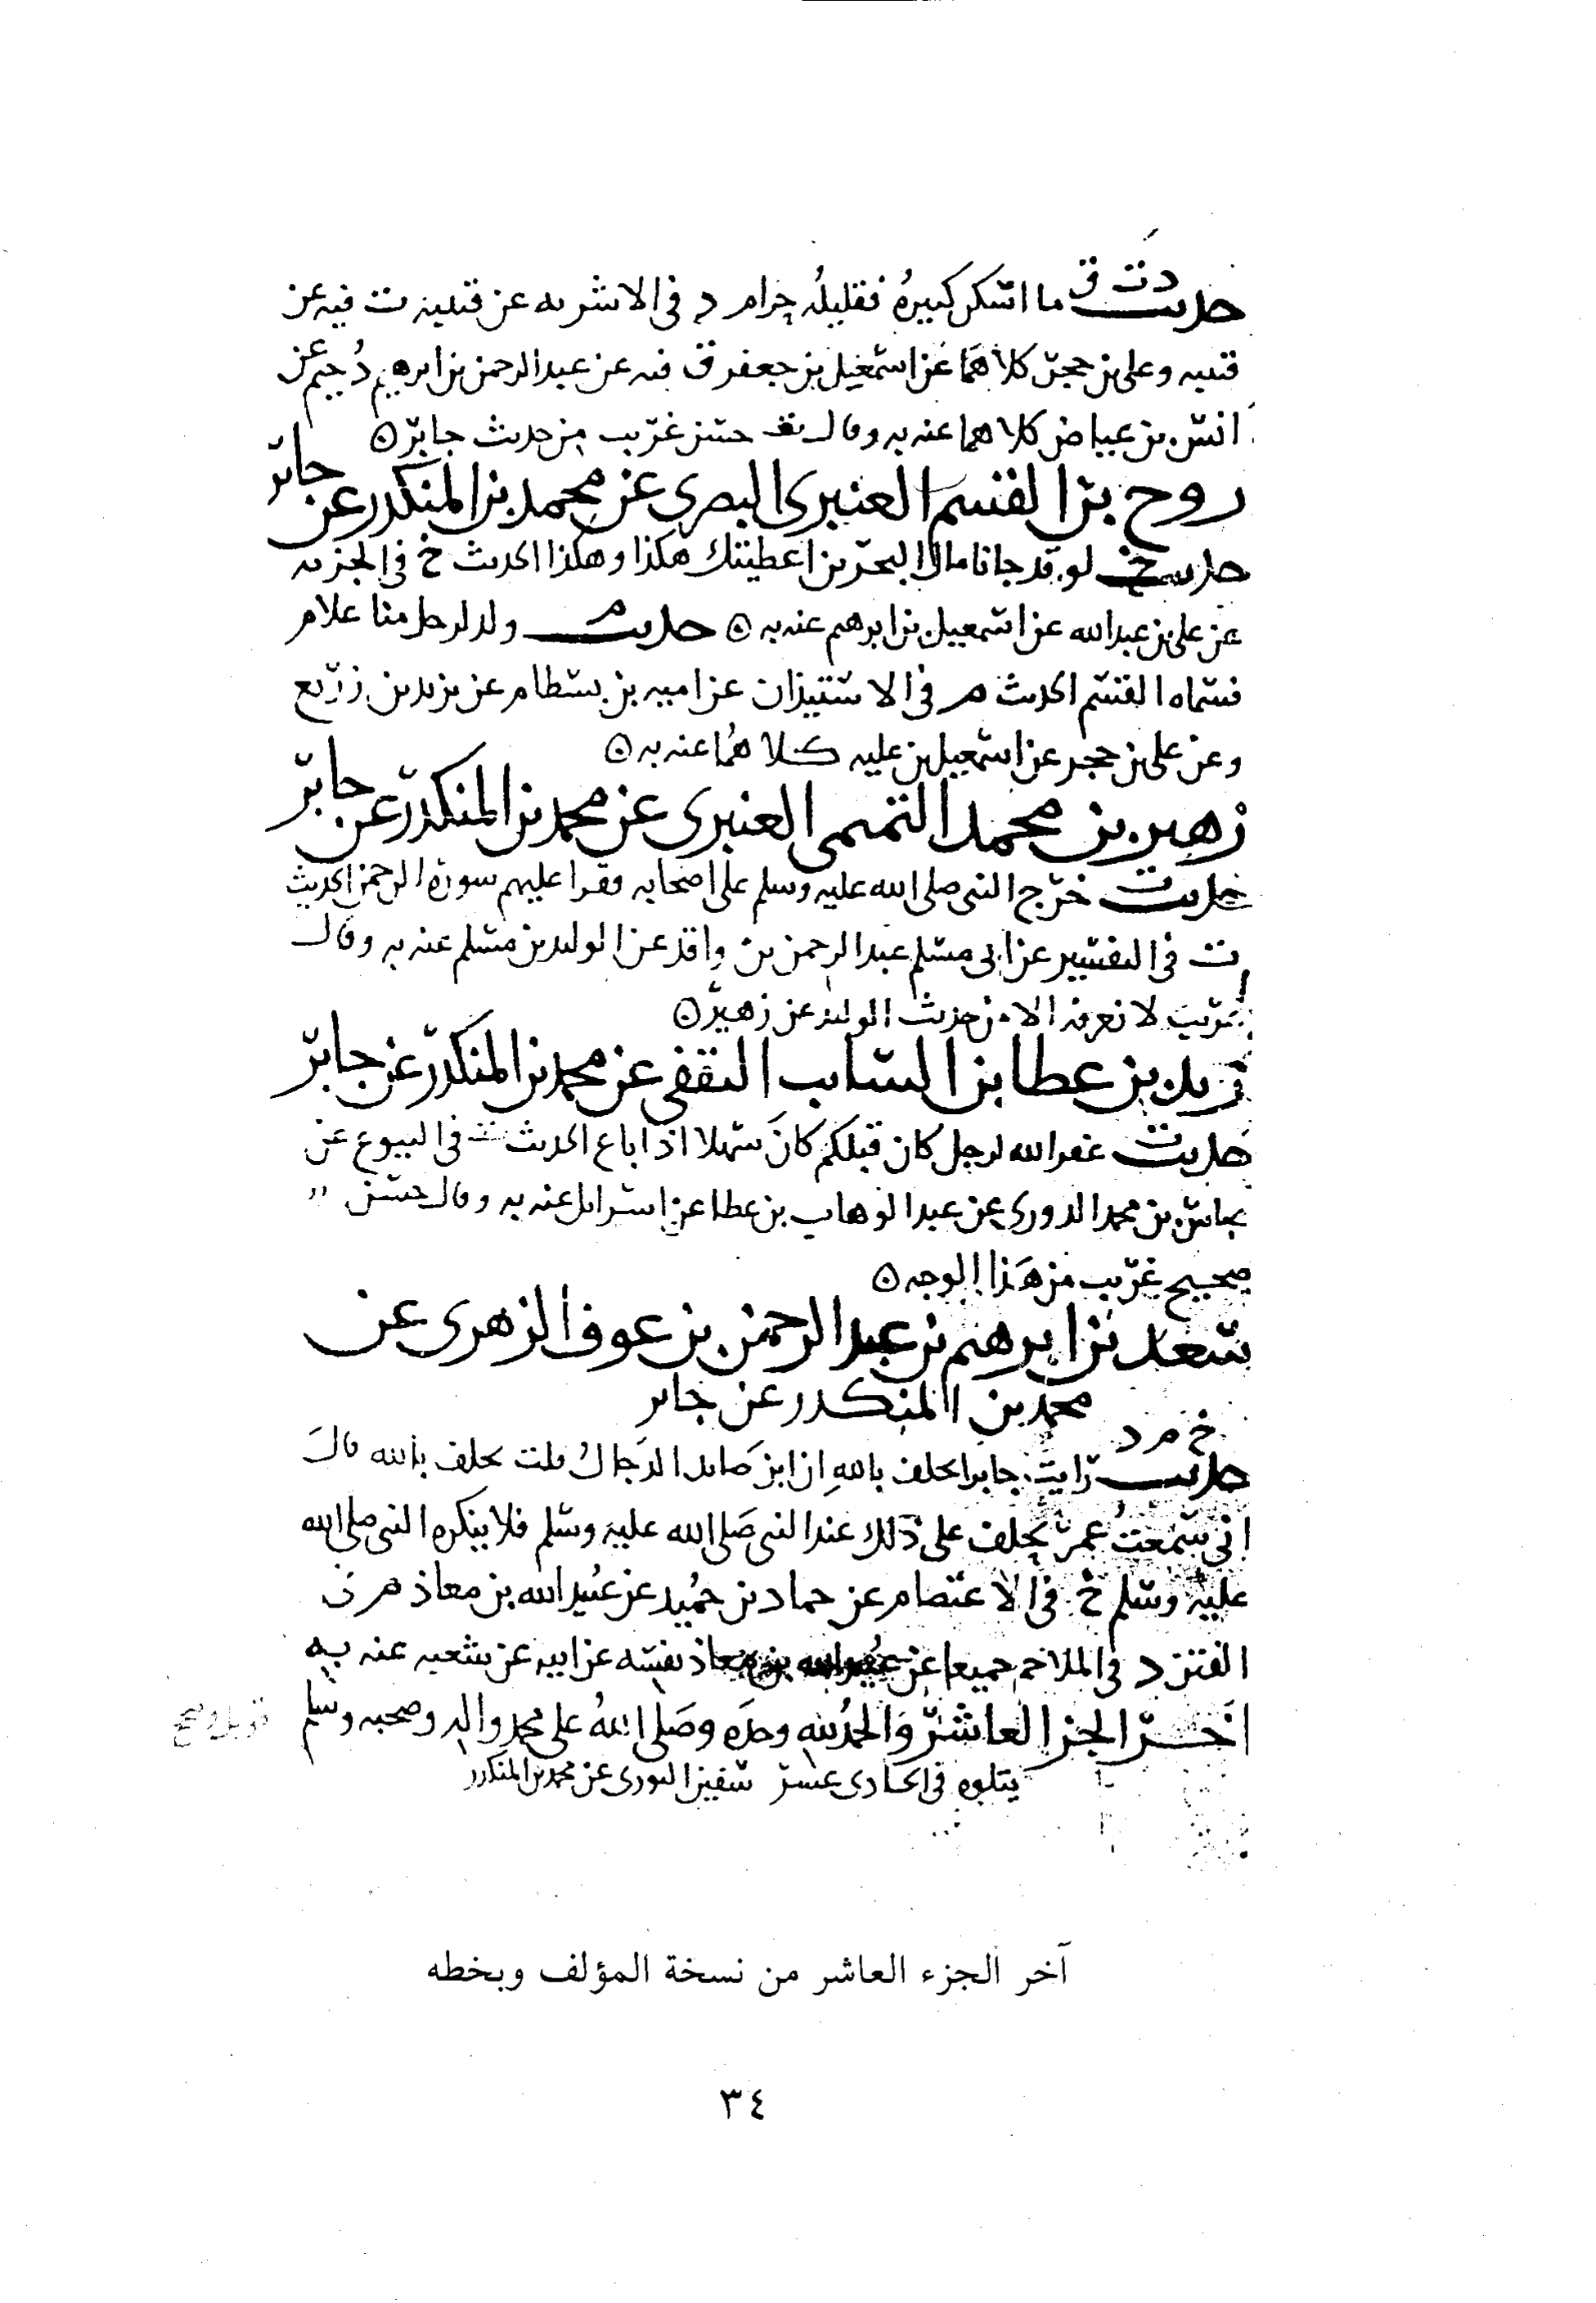 د ت ق
حديث ما اسكر كثيره فقليله حرام د في الاشربه عن قتيبه ت فيه عن
قتيبه وعلي بن حجر كلاهما عن اسمعيل بن جعفر ق فيه عن عبد الرحمن بن ابرهيم دحيم عن
انس بن عياض كلاهما عنه به وقال ت حسن غريب من حديث جابر ه
روح بن القسم العنبري البصري عن محمد بن المنكدر عن جابر
حديث خ لو قد جانا مال البحرين اعطيتك هكذا وهكذا الحديث خ في الجزيه
عن علي بن عبد الله عن اسمعيل بن ابرهيم عنه به ه حديث م ولد لرجل منا غلام
فسماه القسم الحديث م في الاستيذان عن اميه بن بسطام عن يزيد بن زريع
وعن علي بن حجر عن اسمعيل بن عليه كلاهما عنه به ه
زهير بن محمد التميمي العنبري عن محمد بن المنكدر عن جابر
حديث ت خرج النبي صلى الله عليه وسلم على اصحابه فقرا عليهم سورة الرحمن الحديث
ت في التفسير عن ابي مسلم عبد الرحمن بن واقد عن الوليد بن مسلم عنه به وقال
غريب لا نعرفه الا من حديث الوليد عن زهير ه
زيد بن عطا بن السايب الثقفي عن محمد بن المنكدر عن جابر
حديث ت غفر الله لرجل كان قبلكم كان سهلا اذا باع الحديث ت في البيوع عن
عباس بن محمد الدوري عن عبد الوهاب بن عطا عن اسرايل عنه به وقال حسن
صحيح غريب من هذا الوجه ه
سعد بن ابرهيم بن عبد الرحمن بن عوف الزهري عن
محمد بن المنكدر عن جابر
خ م د
حديث رايت جابرا يحلف بالله ان ابن صايد الدجال قلت تحلف بالله قال
اني سمعت عمر يحلف على ذلك عند النبي صلى الله عليه وسلم فلا ينكره النبي صلى الله
عليه وسلم خ في الاعتصام عن حماد بن حميد عن عبيد الله بن معاذ م في
الفتن د في الملاحم جميعا عن عبيد الله بن معاذ نفسه عن ابيه عن شعبه عنه به
اخر الجز العاشر والحمد لله وحده وصلى الله على محمد واله وصحبه وسلم
يتلوه في الحادي عشر سفين الثوري عن محمد بن المنكدر
آخر الجزء العاشر من نسخة المؤلف وبخطه
٣٤